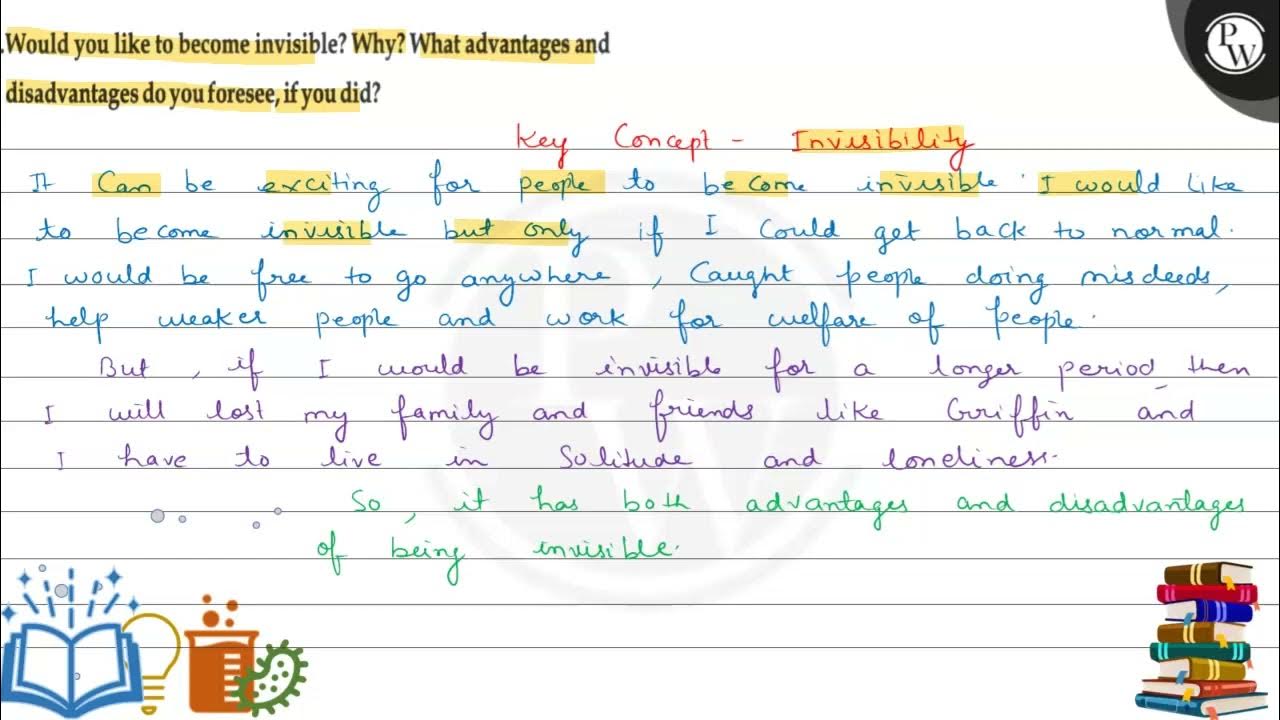 .Would you like to become invisible? Why? What advantages and
disadvantages do you foresee, if you did?
P
W
Key Concept - Invisibility
It can be exciting for people to become invisible. I would like
to become invisible but only if I could get back to normal.
I would be free to go anywhere, caught people doing misdeeds,
help weaker people and work for welfare of people.
But, if I would be invisible for a longer period then
I will lost my family and friends like Griffin and
I have to live in solitude and loneliness.
So, it has both advantages and disadvantages
of being invisible.